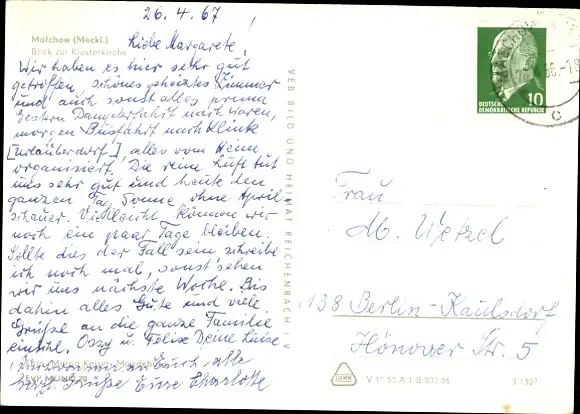 26.4.67
Malchow (Meckl.)
Blick zur Klosterkirche
Liebe Margarete,
Wir haben es hier sehr gut
getroffen, schönes geheiztes Zimmer
und auch sonst alles prima
Gestern Dampferfahrt nach Waren,
morgen Busfahrt nach Klink
[Urlauberdorf], alles vom Heim
organisiert. Die reine Luft tut
uns sehr gut und heute den
ganzen Tag Sonne, ohne April-
schauer. Vielleicht können wir
noch ein paar Tage bleiben.
Sollte dies der Fall sein schreibe
ich noch mal, sonst sehen
wir uns nächste Woche. Bis
dahin alles Gute und viele
Grüße an die ganze Familie
einschl. Ossy u. Felix Deine Luise
Euch alle
Grüße Eure Charlotte
VEB BILD UND HEIMAT REICHENBACH I. V
DEUTSCHE
DEMOKRATISCHE REPUBLIK
10
Frau
M. Wetzel
138 Berlin-Kaulsdorf
Hönower Str. 5
S 1307